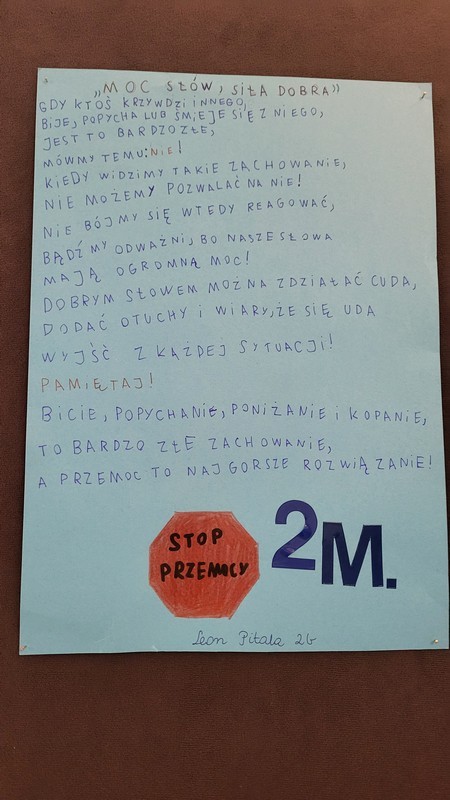 „MOC SŁÓW, SIŁA DOBRA"
GDY KTOŚ KRZYWDZI INNEGO,
BIJE, POPYCHA LUB ŚMIEJE SIĘ Z NIEGO,
JEST TO BARDZO ZŁE,
MÓWMY TEMU: NIE!
KIEDY WIDZIMY TAKIE ZACHOWANIE,
NIE MOŻEMY POZWALAĆ NA NIE!
NIE BÓJMY SIĘ WTEDY REAGOWAĆ,
BĄDŹMY ODWAŻNI, BO NASZE SŁOWA
MAJĄ OGROMNĄ MOC!
DOBRYM SŁOWEM MOŻNA ZDZIAŁAĆ CUDA,
DODAĆ OTUCHY I WIARY, ŻE SIĘ UDA
WYJŚĆ Z KAŻDEJ SYTUACJI!
PAMIĘTAJ!
BICIE, POPYCHANIE, PONIŻANIE I KOPANIE,
TO BARDZO ZŁE ZACHOWANIE,
A PRZEMOC TO NAJGORSZE ROZWIĄZANIE!
STOP
PRZEMOCY
2M.
Leon Pitala 2b